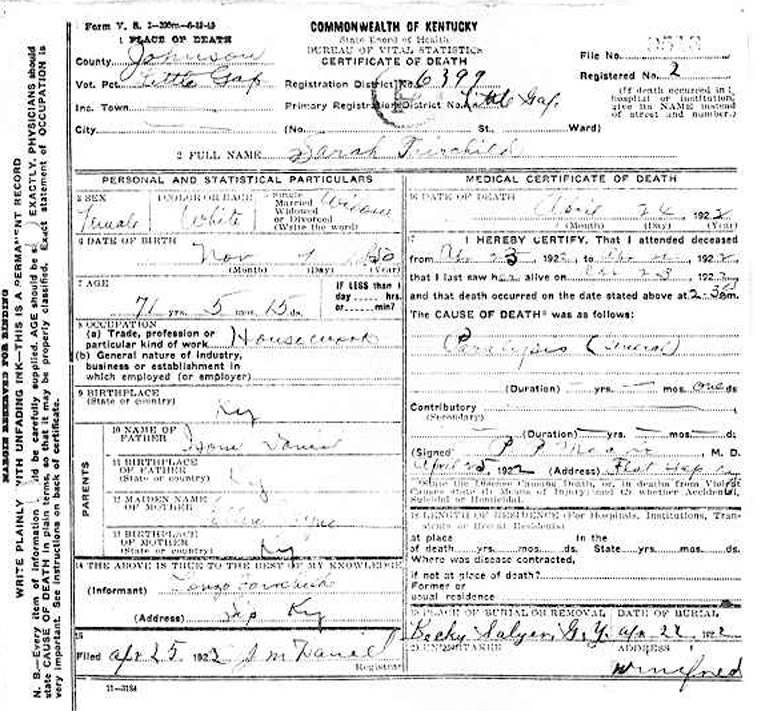 Form V. S. 1-
COMMONWEALTH OF KENTUCKY
1 PLACE OF DEATH
State Board of Health
BUREAU OF VITAL STATISTICS
CERTIFICATE OF DEATH
County Johnson
File No.
Vot. Pct. Little Gap
Registration District No. 6399
Registered No. 2
Inc. Town
Primary Registration District No. Little Gap
(If death occurred in hospital or institution, give its NAME instead of street and number.)
City
(No. St. Ward)
2 FULL NAME Sarah Fairchild
PERSONAL AND STATISTICAL PARTICULARS
3 SEX
Female
4 COLOR OR RACE
White
5 Single
Married
Widowed
or Divorced
(Write the word)
Widow
6 DATE OF BIRTH
Nov 1850
(Month) (Day) (Year)
7 AGE
71 yrs. 5 mos. 15 ds.
IF LESS than 1
day hrs.
or min?
8 OCCUPATION
(a) Trade, profession or
particular kind of work Housework
(b) General nature of industry,
business or establishment in
which employed (or employer)
9 BIRTHPLACE
(State or country)
Ky
PARENTS
10 NAME OF
FATHER
11 BIRTHPLACE
OF FATHER
(State or country) Ky
12 MAIDEN NAME
OF MOTHER
13 BIRTHPLACE
OF MOTHER
(State or country) Ky
14 THE ABOVE IS TRUE TO THE BEST OF MY KNOWLEDGE
(Informant) Lonzo Fairchild
(Address) Ky
15
Filed Apr 25 1922 J M Daniel
Registrar
11-3184
MEDICAL CERTIFICATE OF DEATH
16 DATE OF DEATH
April 24, 1922
(Month) (Day) (Year)
17 I HEREBY CERTIFY, That I attended deceased
from Apr 23, 1922, to 1922
that I last saw her alive on 23 1922
and that death occurred on the date stated above at 2-30 m.
The CAUSE OF DEATH* was as follows:
Paralysis (General)
(Duration) yrs. mos. one ds
Contributory
(Secondary)
(Duration) yrs. mos. ds
(Signed) M. D.
April 25, 1922 (Address) Flat Gap
*State the Disease Causing Death, or, in deaths from Violent
Causes state (1) Means of Injury; and (2) whether Accidental,
Suicidal or Homicidal.
18 LENGTH OF RESIDENCE (For Hospitals, Institutions, Tran-
sients or Recent Residents)
at place In the
of death yrs. mos. ds. State yrs. mos. ds.
Where was disease contracted,
if not at place of death?
Former or
usual residence
19 PLACE OF BURIAL OR REMOVAL DATE OF BURIAL
Becky Salyer G. Y. Apr 1922
20 UNDERTAKER ADDRESS
Winifred
MARGIN RESERVED FOR BINDING
WRITE PLAINLY WITH UNFADING INK—THIS IS A PERMANENT RECORD
N. B.—Every item of information should be carefully supplied. AGE should be stated EXACTLY. PHYSICIANS should
state CAUSE OF DEATH in plain terms, so that it may be properly classified. Exact statement of OCCUPATION is
very important. See instructions on back of certificate.